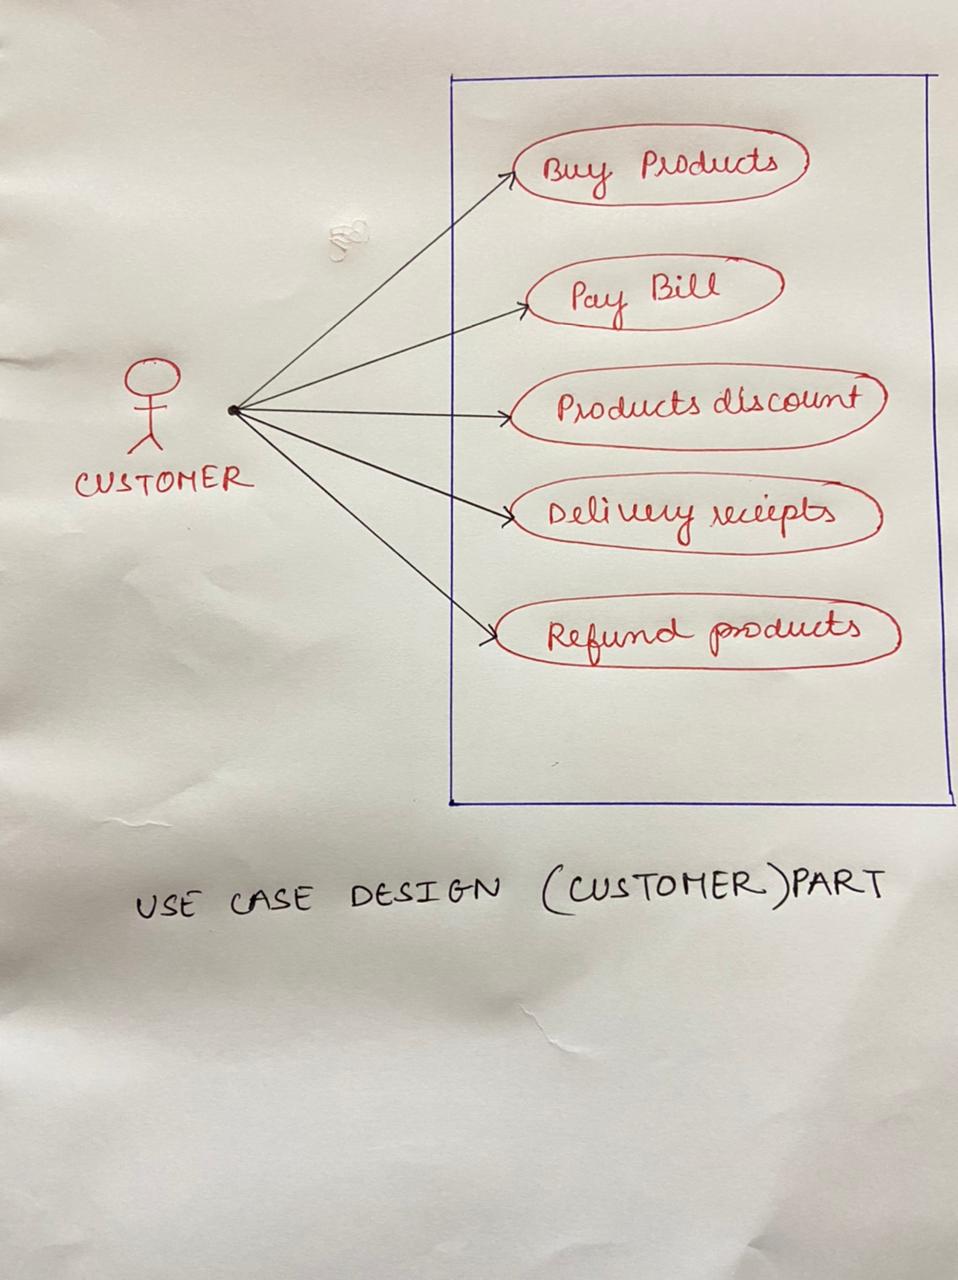 Buy Products
Pay Bill
Products discount
Delivery receipts
Refund products
CUSTOMER
USE CASE DESIGN (CUSTOMER) PART